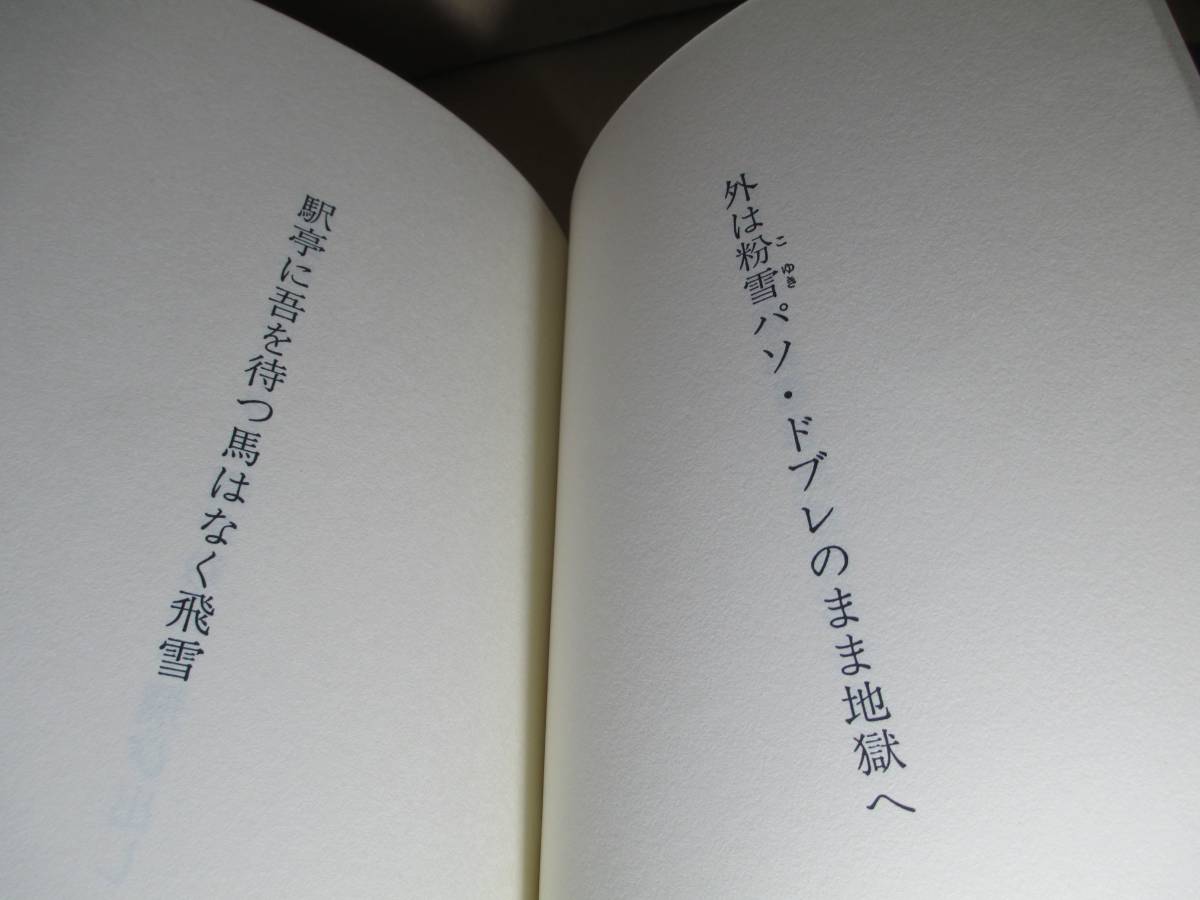 外は粉雪パソ・ドブレのまま地獄へ
こゆき
駅亭に吾を待つ馬はなく飛雪